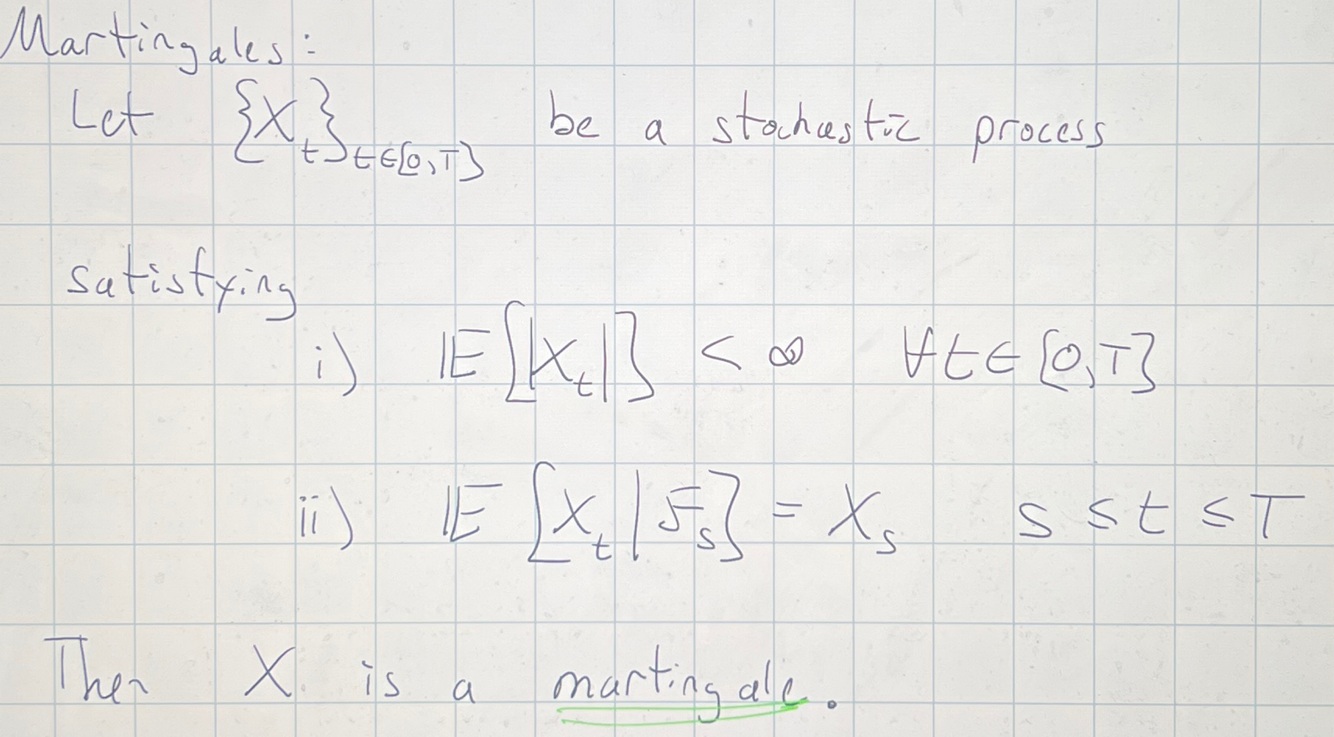 Martingales:
Let {X_t}_{t∈[0,T]} be a stochastic process
satisfying
i) 𝔼[|X_t|] < ∞ ∀t∈[0,T]
ii) 𝔼[X_t|ℱ_s] = X_s s ≤ t ≤ T
Then X is a martingale.